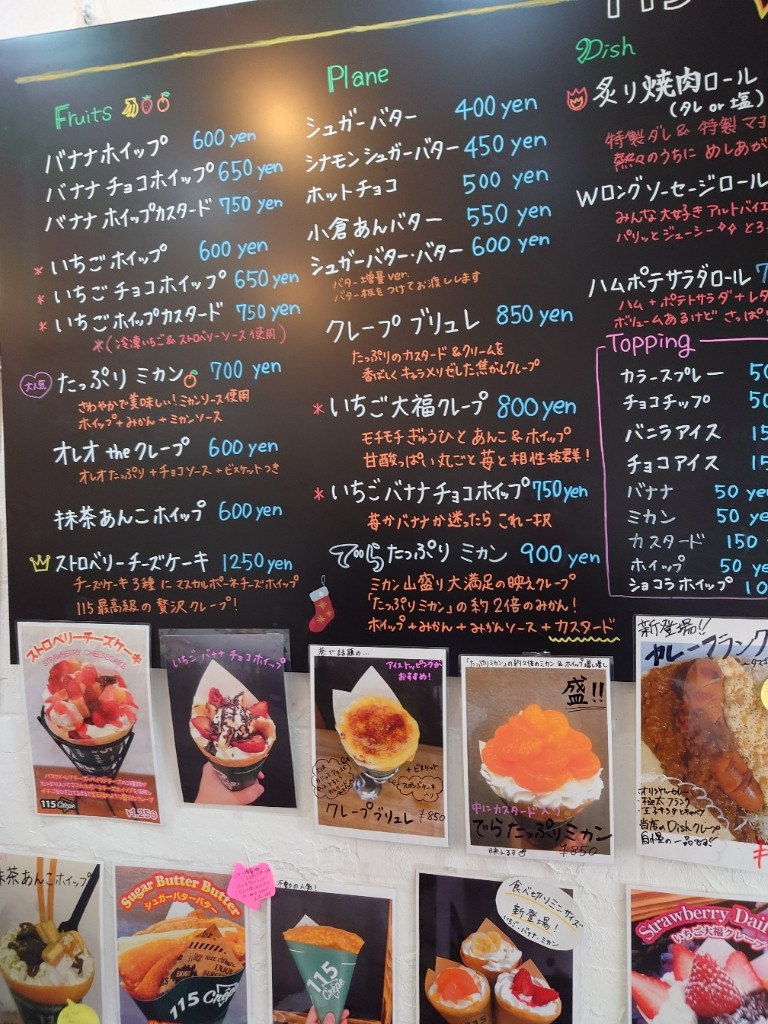 Fruits
バナナホイップ 600 yen
バナナチョコホイップ 650 yen
バナナホイップカスタード 750 yen
* いちごホイップ 600 yen
* いちごチョコホイップ 650 yen
* いちごホイップカスタード 750 yen
*(冷凍いちご&ストロベリーソース使用)
大人気 たっぷりミカン 700 yen
さわやかで美味しい!ミカンソース使用
ホイップ+みかん+ミカンソース
オレオ the クレープ 600 yen
オレオたっぷり+チョコソース+ビスケットつき
抹茶あんこホイップ 600 yen
ストロベリーチーズケーキ 1250 yen
チーズケーキ3種にマスカルポーネチーズホイップ
115最高級の贅沢クレープ!
Plane
シュガーバター 400 yen
シナモンシュガーバター 450 yen
ホットチョコ 500 yen
小倉あんバター 550 yen
シュガーバター・バター 600 yen
バター増量ver.
バター板をつけてお渡しします
クレープブリュレ 850 yen
たっぷりのカスタード&クリームを
香ばしくキャラメリゼした焦がしクレープ
* いちご大福クレープ 800 yen
モチモチぎゅうひとあんこ&ホイップ
甘酸っぱい丸ごと苺と相性抜群!
* いちごバナナチョコホイップ 750 yen
苺かバナナか迷ったらこれ一択
でらたっぷりミカン 900 yen
ミカン山盛り大満足の映えクレープ
「たっぷりミカン」の約2倍のみかん!
ホイップ+みかん+みかんソース+カスタード
Dish
炙り焼肉ロール
(タレ or 塩)
特製ダレ&特製マヨ
熱々のうちにめしあが
Wロングソーセージロール
みんな大好きアルトバイエ
パリッとジューシー
ハムポテサラダロール 7
ハム+ポテトサラダ+レタ
ボリュームあるけどさっぱ
Topping
カラースプレー 50
チョコチップ 50
バニラアイス 15
チョコアイス 15
バナナ 50 yen
ミカン 50 ye
カスタード 150
ホイップ 50 ye
ショコラホイップ 10
ストロベリーチーズケーキ
STRAWBERRY CHEESECAKE
115 Crêpe
¥1,250
いちごバナナチョコホイップ
巷で話題の…
アイストッピングが
おすすめ!
+ビスケット
クレープブリュレ ¥850
「たっぷりミカン」の約2倍のミカン&ホイップ
盛!!
中にカスタード入り
でらたっぷりミカン
映えます
¥850
新登場!!
カレーフランク
オリジナルカレー
極太フランク
当店のDishクレープ
自慢の一品です!!
抹茶あんこホイップ
115
Sugar Butter Butter
シュガーバターバター
115 Crêpe
115
Crêpe
食べ切りミニサイズ
新登場!
いちご・バナナ・ミカン
115
Strawberry Dai
いちご大福クレープ